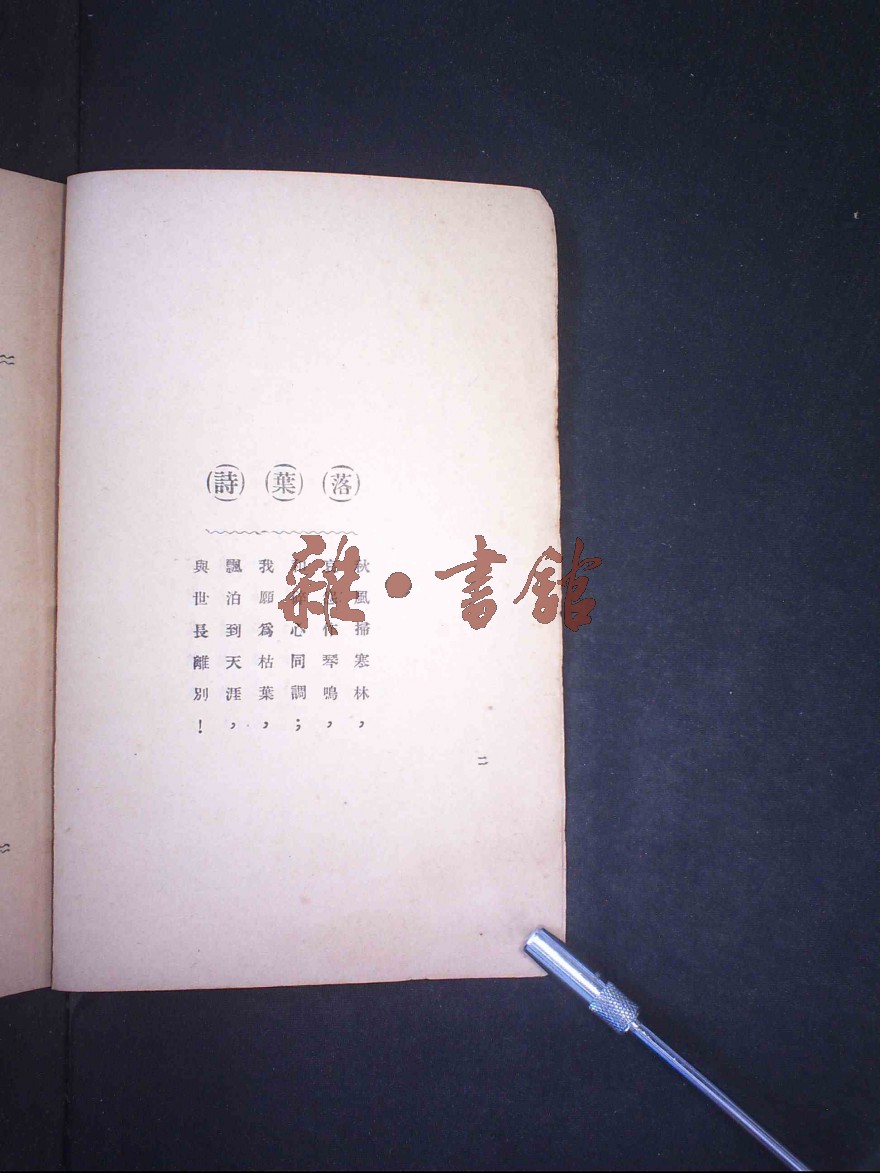 落葉詩
秋風掃寒林，
琴鳴，
心同調；
我願為枯葉，
飄泊到天涯，
與世長離別！
二
雜·書館